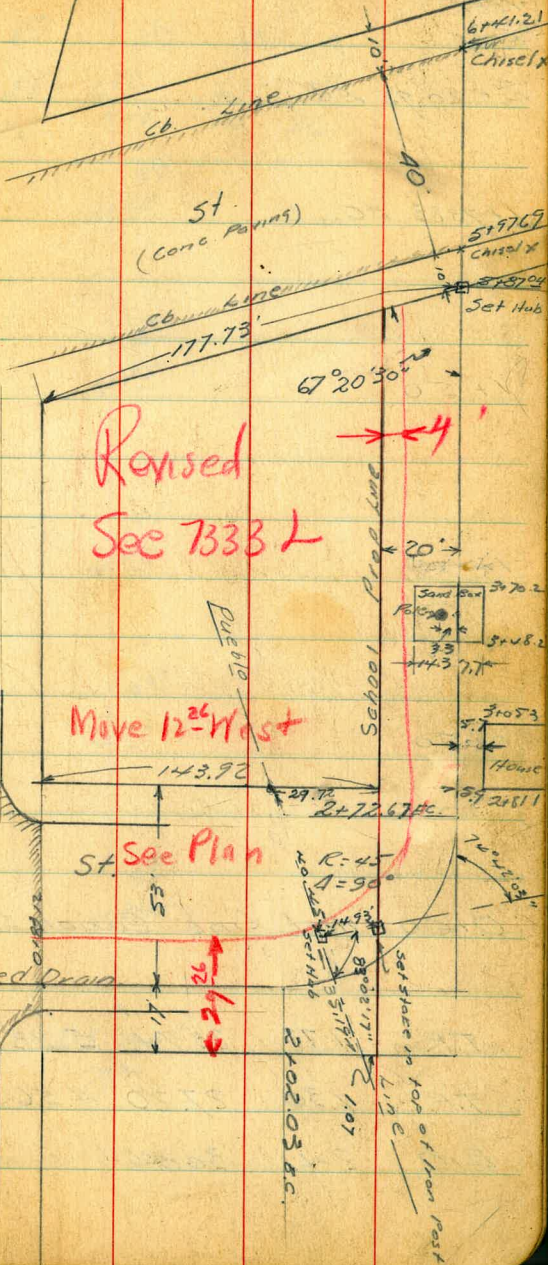 6+41.21
Chisel x
10'
Cb. Line
40'
St.
(Conc Paving)
5+97.69
Chisel x
10'
5+87.04
Set Hub
Cb. Line
177.73'
67°20'30"
4'
Revised
See 7333 L
School Prop Line
20'
Sand Box
3+70.2
Pole
3+48.2
3.3
14.3
7.7
Pueblo
Move 12 26 West
3+05.3
5.7
House
5.9
2+81.1
143.92
29.72
2+72.67 E.C.
St.
See Plan
R=45'
Δ=90°
53'
14.93'
Set Hub
83°02'17"
35.19
1.07
Set Stake in top of Iron Post
Line
29 26
17
ed Drain
2+02.03 B.C.